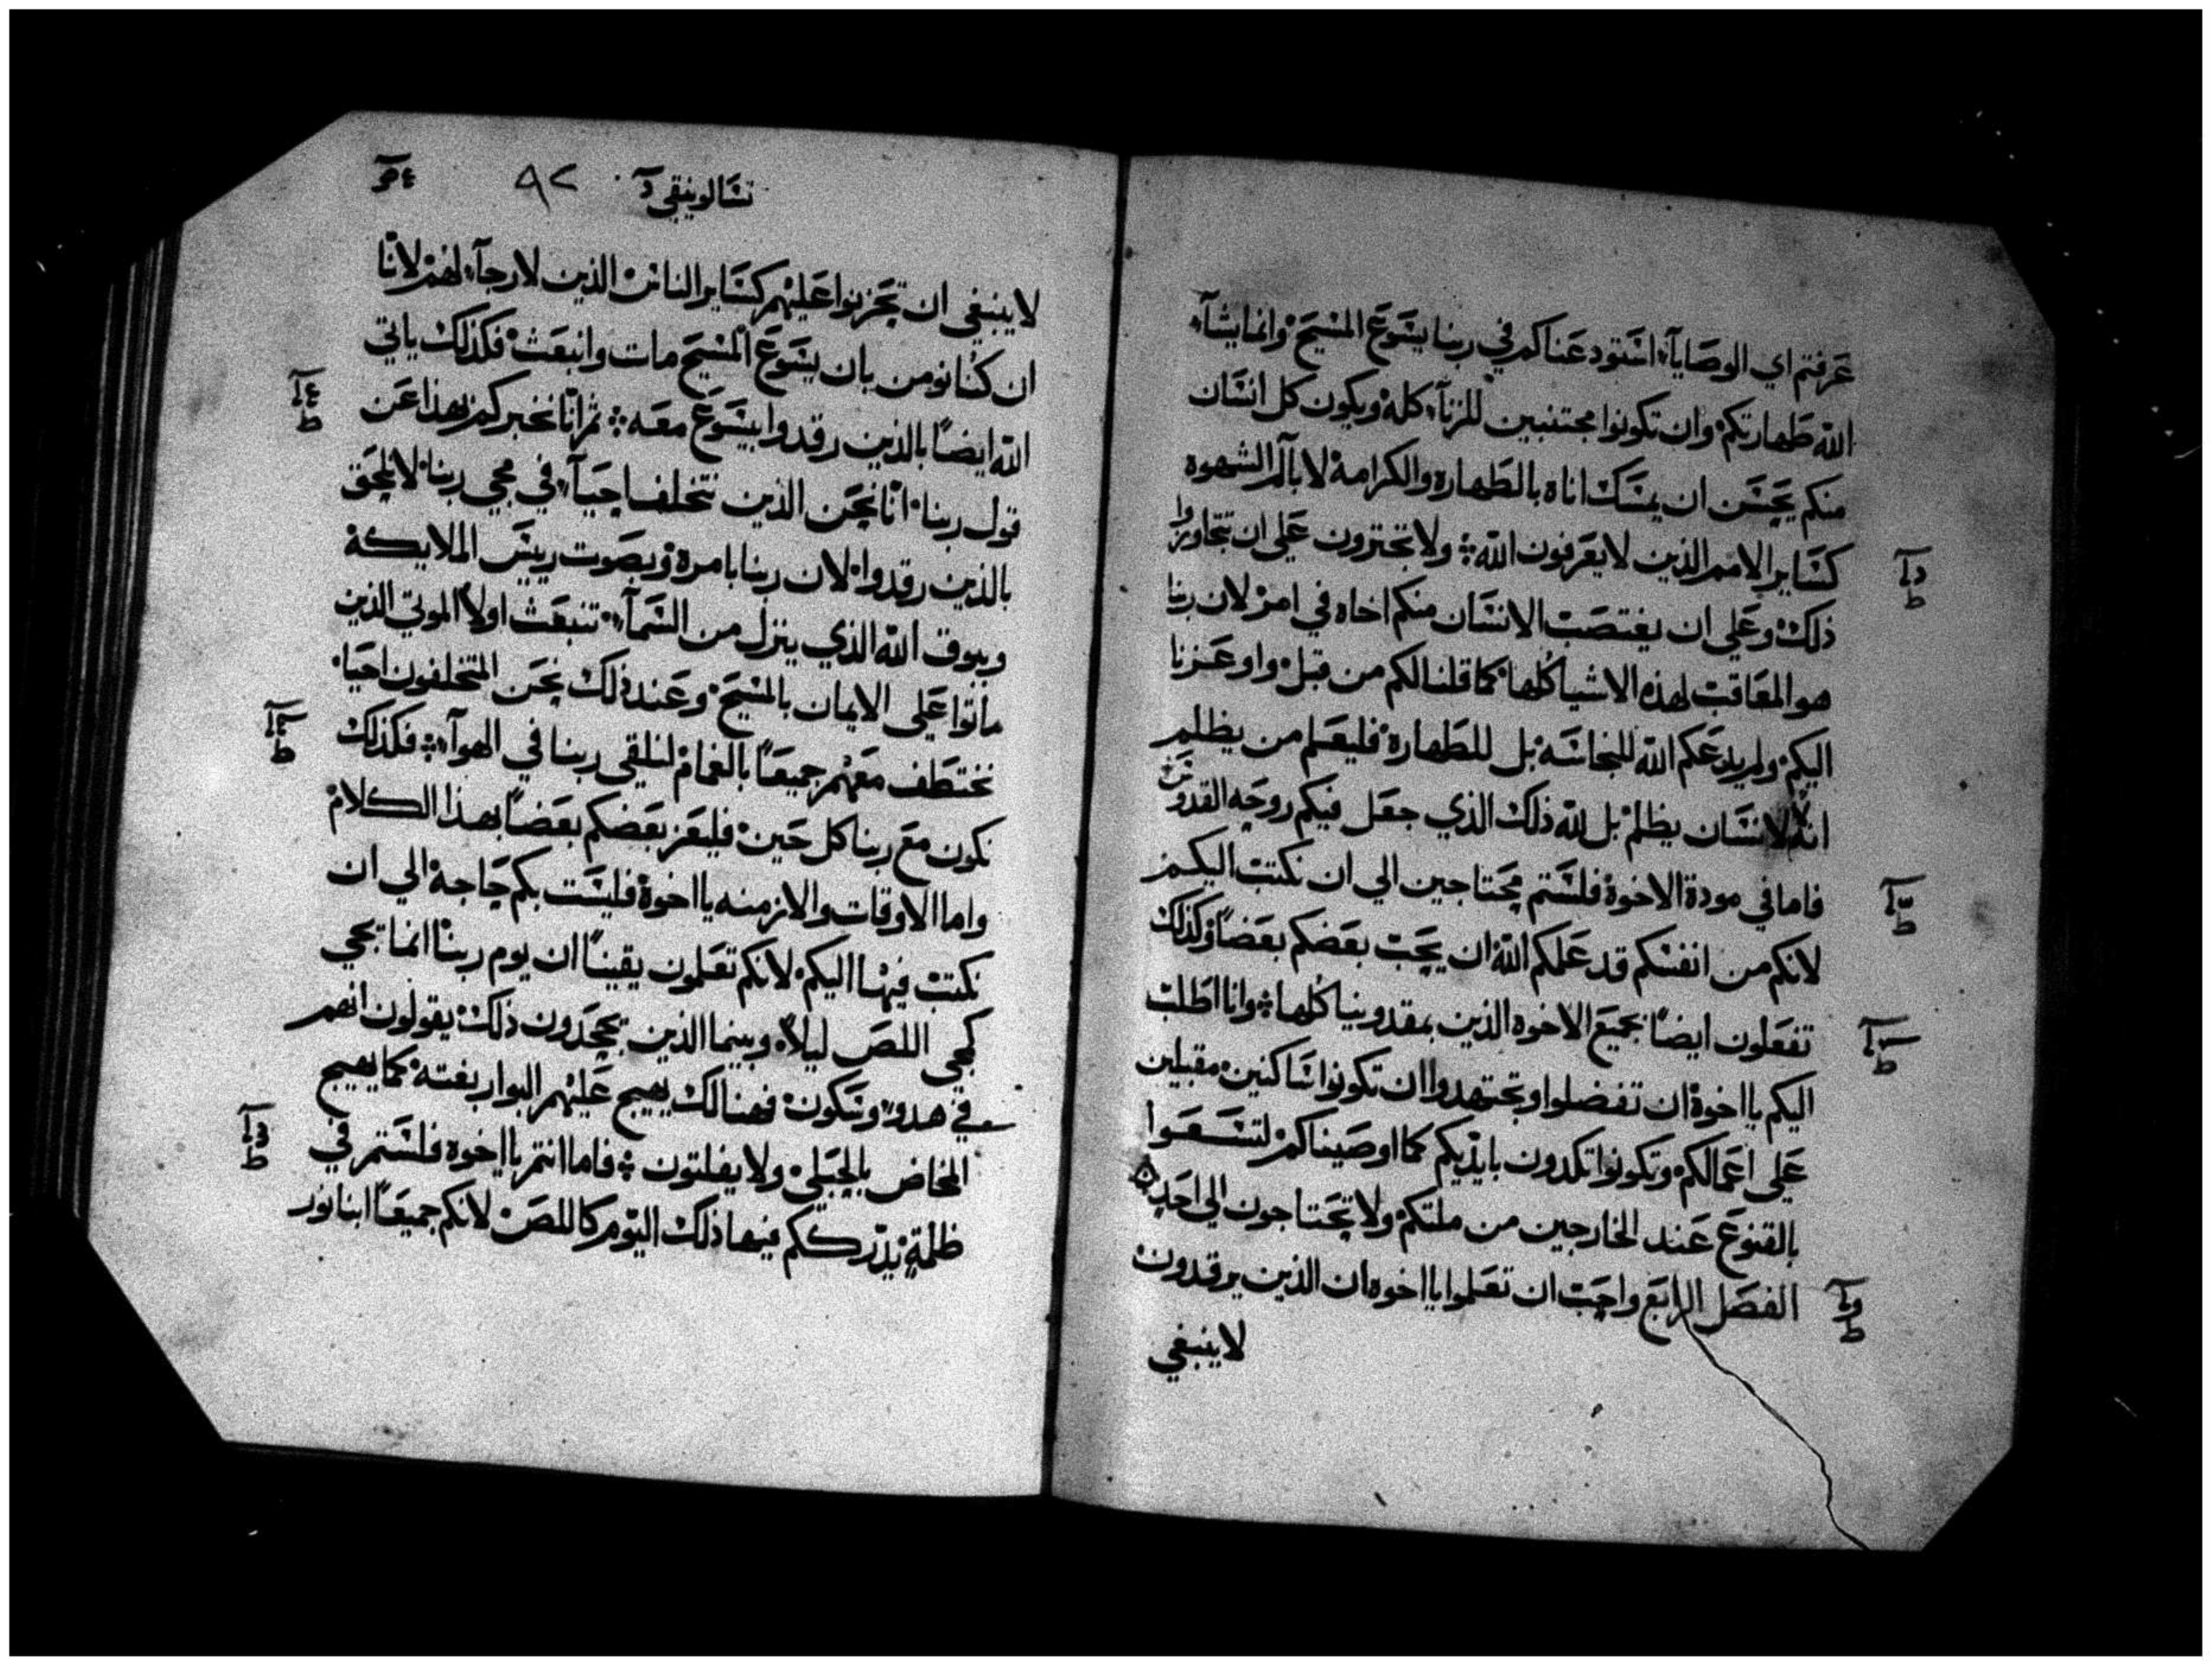 عرفتم اي الوصايآء استودعناكم في ربنا يسوع المسيح وانما يشآء
الله طهارتكم وان تكونوا مجتنبين للزنآء كله ويكون كل انسان
منكم يحسن ان يمسك اناه بالطهاره والكرامة لا بآلم الشهوه
كساير الامم الذين لا يعرفون الله ولا تجترون علي ان تتجاوزوا
ذلك وعلي ان يغتصب الانسان منكم اخاه في امر لان ربنا
هو المعاقب لهذه الاشيا كلها كما قلنا لكم من قبل واوعزنا
اليكم ولم يدعكم الله للنجاسه بل للطهارة فليعلم من يظلم
انه لا لانسان يظلم بل لله ذلك الذي جعل فيكم روحه القدوس
فاما في مودة الاخوة فلستم محتاجين الي ان نكتب اليكم
لانكم من انفسكم قد علمكم الله ان يحب بعضكم بعضاً وكذلك
تفعلون ايضاً بجميع الاخوه الذين بمقدونيا كلها وانا اطلب
اليكم يا اخوة ان تفضلوا وتجتهدوا ان تكونوا ساكنين مقبلين
علي اعمالكم وتكونوا تكدون بايديكم كما اوصيناكم لتسعوا
بالقنوع عند الخارجين من ملتكم ولا تحتاجون الي احد
الفصل الرابع واجب ان تعلموا يا اخوه ان الذين يرقدون
لا ينبغي
تسالونيقي ٩٢
لا ينبغي ان تحزنوا عليهم كساير الناس الذين لا رجآء لهم لانا
ان كنا نومن بان يسوع المسيح مات وانبعث فكذلك ياتي
الله ايضاً بالذين رقدوا بيسوع معه ثم انا نخبركم بهذا عن
قول ربنا انا نحن الذين نتخلف احيآء في مجي ربنا لا نلحق
بالذين رقدوا لان ربنا بامرة وبصوت رييس الملايكة
وببوق الله الذي ينزل من السمآء تنبعث اولاً الموتي الذين
ماتوا علي الايمان بالمسيح وعند ذلك نحن المتخلفون احيا
نختطف معهم جميعاً بالغمام لنلقي ربنا في الهوآء فكذلك
نكون مع ربنا كل حين فليعز بعضكم بعضاً بهذا الكلام
واما الاوقات والازمنه يا اخوة فليست بكم حاجة الي ان
نكتب فيها اليكم لانكم تعلمون يقيناً ان يوم ربنا انما يجي
كمجي اللص ليلاً وبينما الذين يجحدون ذلك يقولون انهم
في هدو وسكون فهنالك يهيج عليهم البوار بغته كما يهيج
المخاض بالحبلي ولا يفلتون فاما انتم يا اخوه فلستم في
ظلمة يدرككم فيها ذلك اليوم كاللص لانكم جميعاً ابنا نور